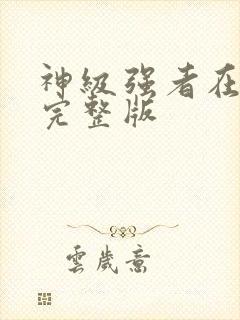 神级强者在
完整版
雲歲意